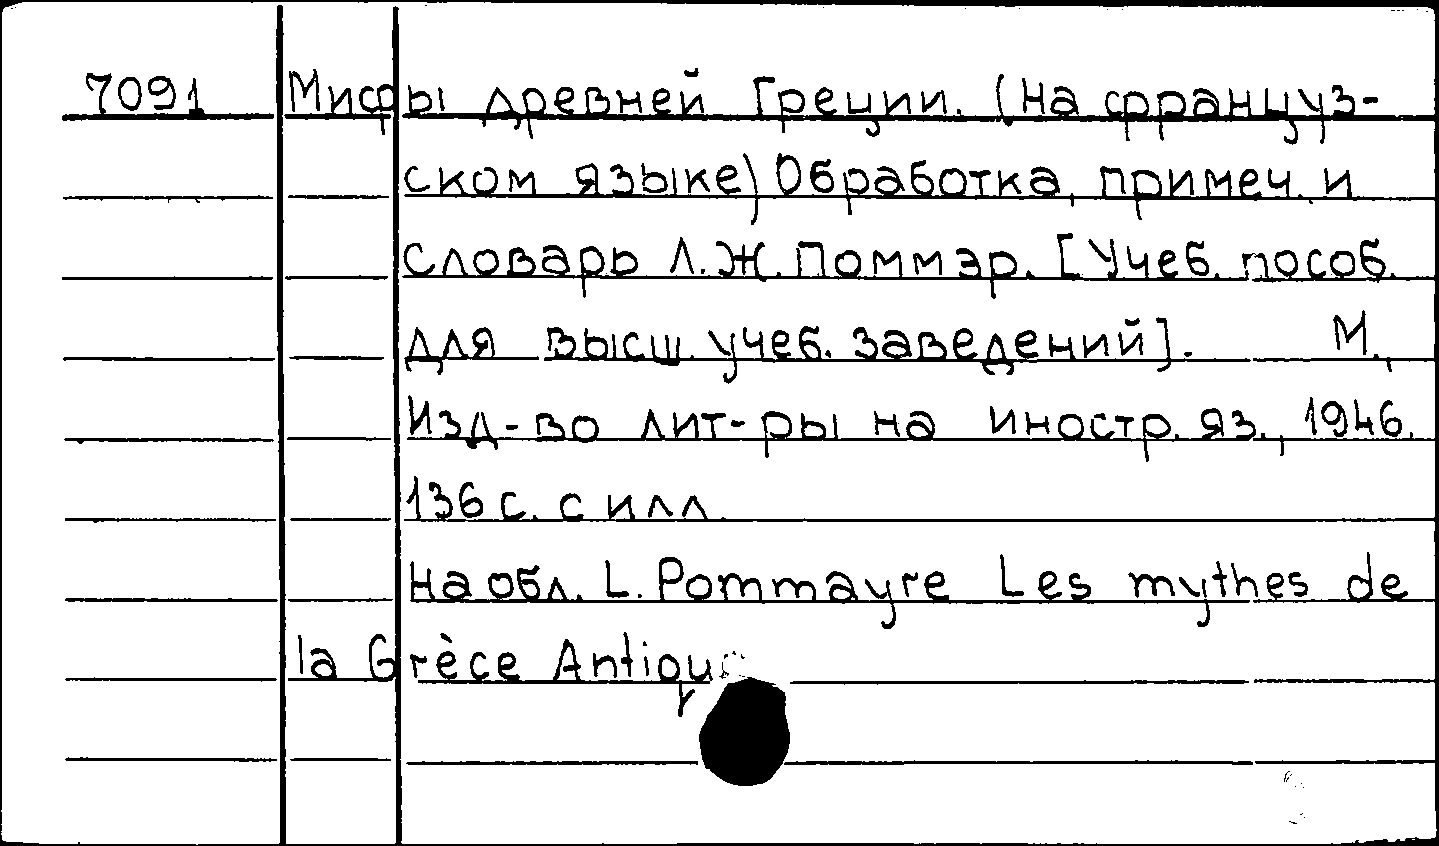 7091 Мифы древней Греции. (На француз-
ском языке) Обработка, примеч. и
словарь Л.Ж. Поммэр. [Учеб. пособ.
для высш. учеб. заведений]. М.,
Изд-во лит-ры на иностр. яз., 1946.
136 с. с илл.
На обл. L. Pommayre Les mythes de
la Grèce Antique